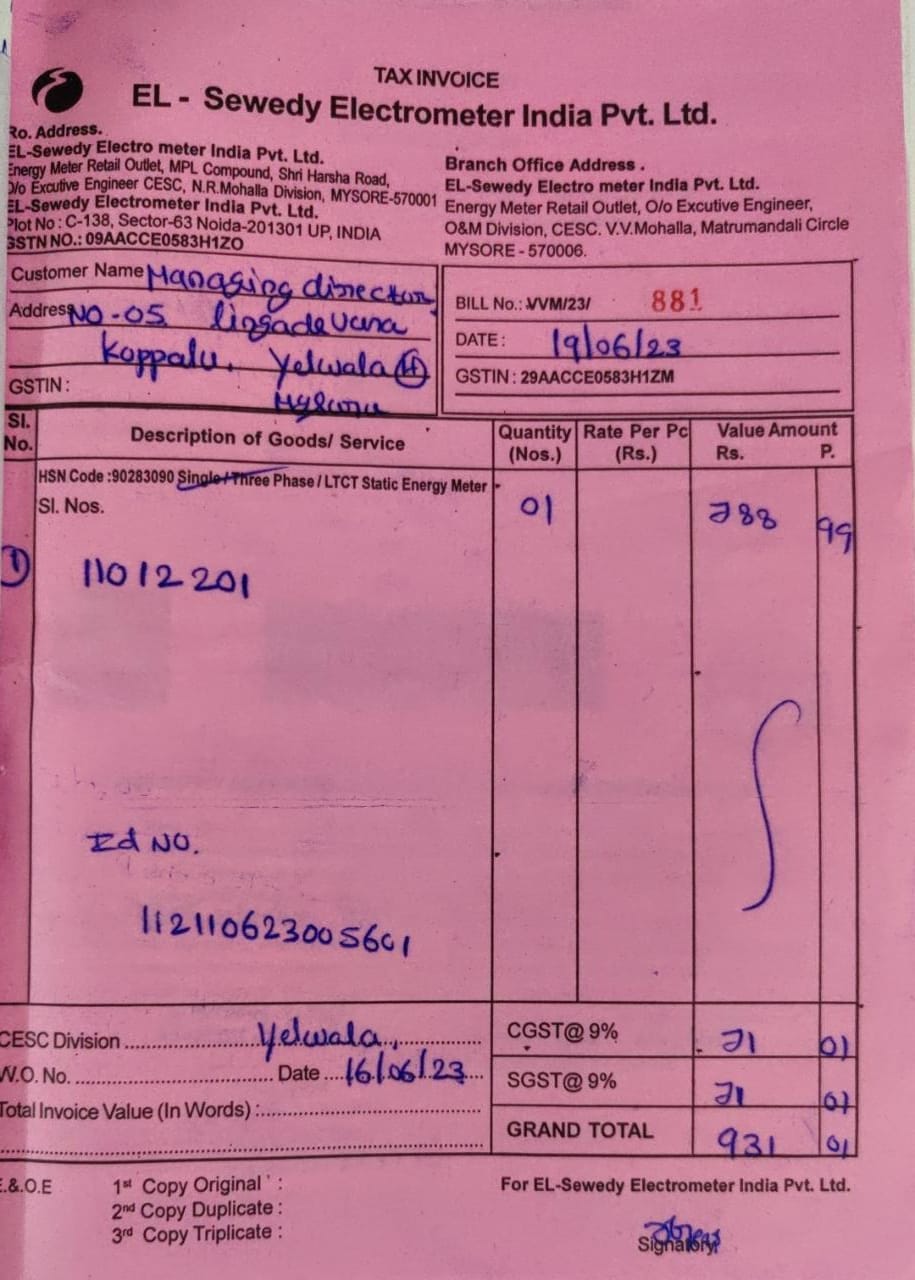 TAX INVOICE
EL - Sewedy Electrometer India Pvt. Ltd.
Ro. Address.
EL-Sewedy Electro meter India Pvt. Ltd.
Energy Meter Retail Outlet, MPL Compound, Shri Harsha Road,
O/o Excutive Engineer CESC, N.R.Mohalla Division, MYSORE-570001
EL-Sewedy Electrometer India Pvt. Ltd.
Plot No : C-138, Sector-63 Noida-201301 UP, INDIA
GSTN NO.: 09AACCE0583H1ZO
Branch Office Address .
EL-Sewedy Electro meter India Pvt. Ltd.
Energy Meter Retail Outlet, O/o Excutive Engineer,
O&M Division, CESC. V.V.Mohalla, Matrumandali Circle
MYSORE - 570006.
Customer Name Managing director
Address NO-05 lingadevara
Koppalu, Yelwala (H)
GSTIN : Mysuru
BILL No.: VVM/23/ 881
DATE : 19/06/23
GSTIN : 29AACCE0583H1ZM
Sl. No. Description of Goods/ Service Quantity (Nos.) Rate Per Pc (Rs.) Value Amount Rs. P.
HSN Code :90283090 Single/Three Phase / LTCT Static Energy Meter
Sl. Nos. 01 788 99
1 11012201
Id NO.
112110623005601
CESC Division Yelwala CGST@ 9% 71 01
W.O. No. Date 16/06/23 SGST@ 9% 71 01
Total Invoice Value (In Words) :
GRAND TOTAL 931 01
E.&.O.E 1st Copy Original : For EL-Sewedy Electrometer India Pvt. Ltd.
2nd Copy Duplicate :
3rd Copy Triplicate :
Signatory